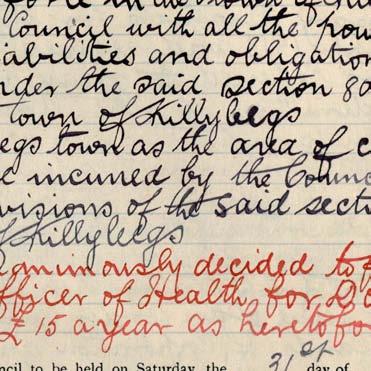 in the town of
Council with all the pow
abilities and obligation
nder the said section 80
town of Killybegs
egs town as the area of c
e incurred by the Counc
visions of the said secti
f Killybegs
animously decided to f
fficer of Health for D
£15 a year as heretofor
ncil to be held on Saturday the 31st day of